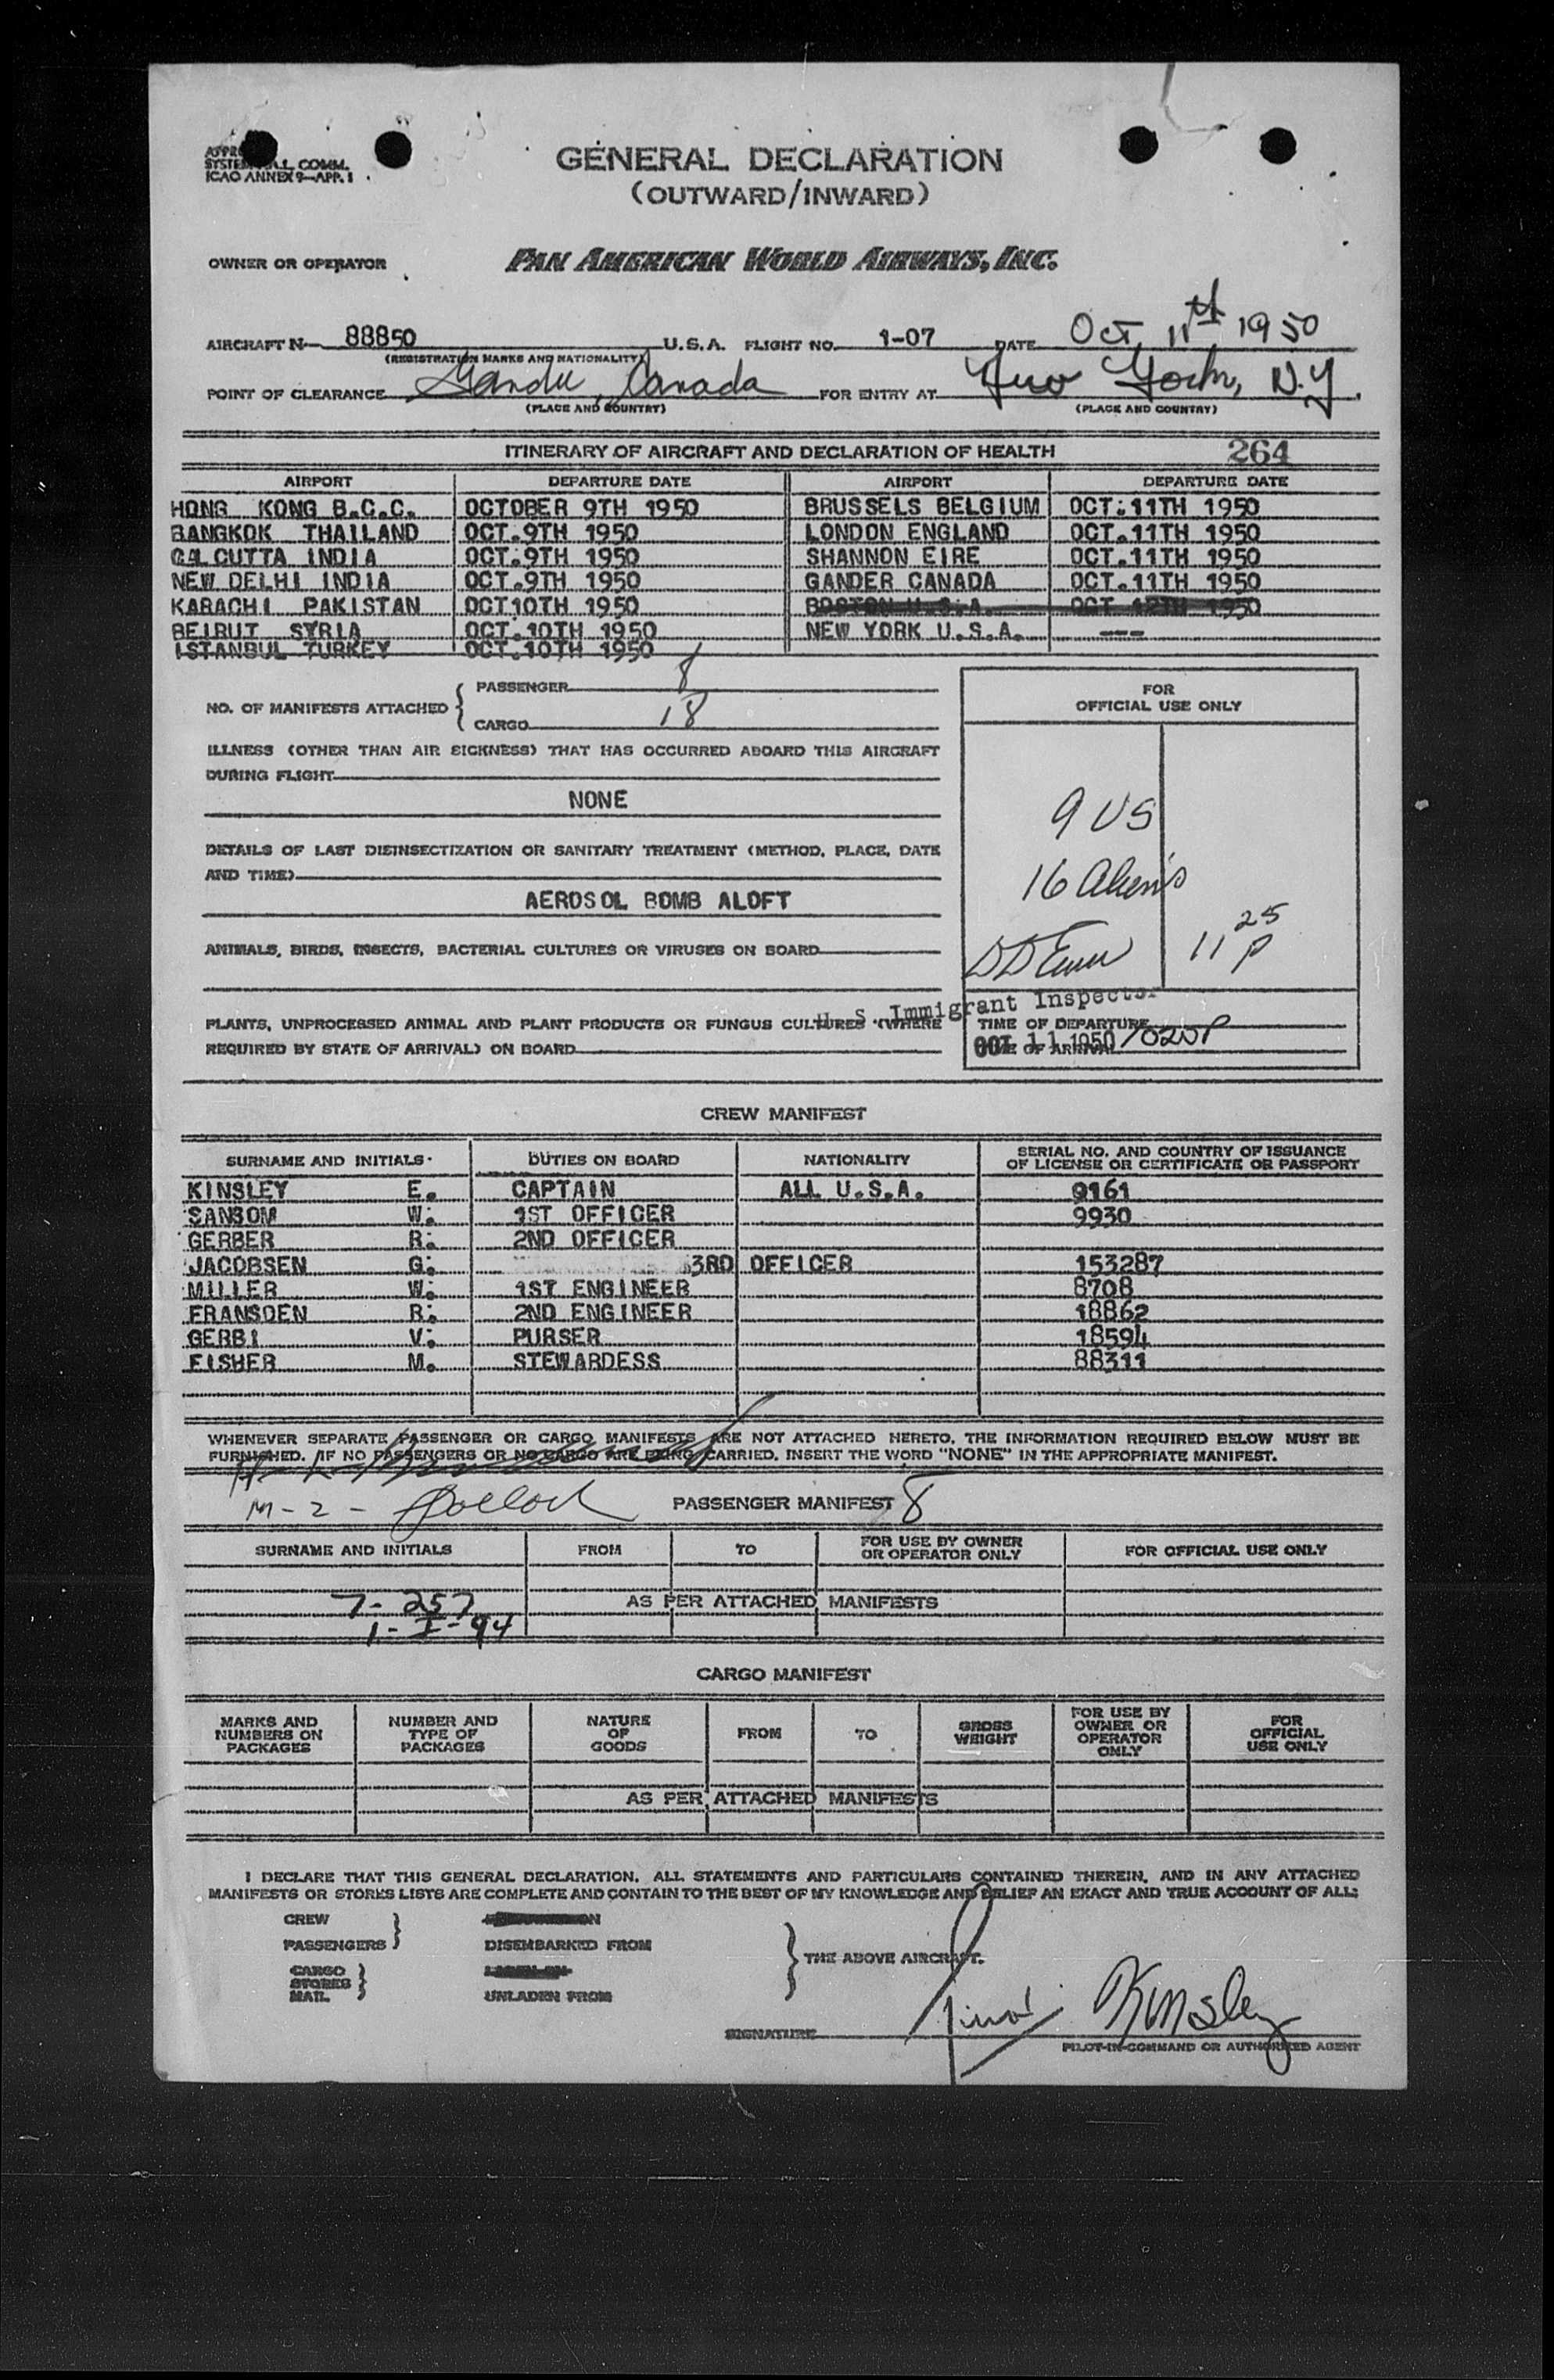 SYSTEM
ICAO ANNEX 9—APP. 1
GENERAL DECLARATION
(OUTWARD/INWARD)
OWNER OR OPERATOR PAN AMERICAN WORLD AIRWAYS, INC.
AIRCRAFT N— 88850 U.S.A. FLIGHT NO. 1-07 DATE Oct, 11th, 1950
(REGISTRATION MARKS AND NATIONALITY)
POINT OF CLEARANCE Gander, Canada FOR ENTRY AT New York, N.Y.
(PLACE AND COUNTRY) (PLACE AND COUNTRY)
ITINERARY OF AIRCRAFT AND DECLARATION OF HEALTH 264
AIRPORT DEPARTURE DATE AIRPORT DEPARTURE DATE
HONG KONG B.C.C. OCTOBER 9TH 1950 BRUSSELS BELGIUM OCT.11TH 1950
BANGKOK THAILAND OCT.9TH 1950 LONDON ENGLAND OCT.11TH 1950
CALCUTTA INDIA OCT.9TH 1950 SHANNON EIRE OCT.11TH 1950
NEW DELHI INDIA OCT.9TH 1950 GANDER CANADA OCT.11TH 1950
KARACHI PAKISTAN OCT10TH 1950 BOSTON U.S.A. OCT 12TH 1950
BEIRUT SYRIA OCT.10TH 1950 NEW YORK U.S.A. ---
ISTANBUL TURKEY OCT.10TH 1950
NO. OF MANIFESTS ATTACHED
PASSENGER 8
CARGO 18
FOR
OFFICIAL USE ONLY
ILLNESS (OTHER THAN AIR SICKNESS) THAT HAS OCCURRED ABOARD THIS AIRCRAFT
DURING FLIGHT
NONE
9 US
DETAILS OF LAST DISINSECTIZATION OR SANITARY TREATMENT (METHOD, PLACE, DATE
AND TIME)
16 Aliens
AEROSOL BOMB ALOFT
11 25 P
ANIMALS, BIRDS, INSECTS, BACTERIAL CULTURES OR VIRUSES ON BOARD
U. S. Immigrant Inspector
PLANTS, UNPROCESSED ANIMAL AND PLANT PRODUCTS OR FUNGUS CULTURES (WHERE
REQUIRED BY STATE OF ARRIVAL) ON BOARD
TIME OF DEPARTURE
TIME OF ARRIVAL
OCT 11 1950 1020P
CREW MANIFEST
SURNAME AND INITIALS DUTIES ON BOARD NATIONALITY SERIAL NO. AND COUNTRY OF ISSUANCE
OF LICENSE OR CERTIFICATE OR PASSPORT
KINSLEY E. CAPTAIN ALL U.S.A. 9161
SANSOM W. 1ST OFFICER 9930
GERBER R. 2ND OFFICER
JACOBSEN G. 3RD OFFICER 153287
MILLER W. 1ST ENGINEER 8708
FRANSDEN R. 2ND ENGINEER 18862
GERBI V. PURSER 18594
FISHER M. STEWARDESS 88311
WHENEVER SEPARATE PASSENGER OR CARGO MANIFESTS ARE NOT ATTACHED HERETO, THE INFORMATION REQUIRED BELOW MUST BE
FURNISHED. IF NO PASSENGERS OR NO CARGO ARE BEING CARRIED, INSERT THE WORD "NONE" IN THE APPROPRIATE MANIFEST.
M-2- PASSENGER MANIFEST 8
SURNAME AND INITIALS FROM TO FOR USE BY OWNER
OR OPERATOR ONLY FOR OFFICIAL USE ONLY
7- 257
AS PER ATTACHED MANIFESTS
1- I-94
CARGO MANIFEST
MARKS AND
NUMBERS ON
PACKAGES
NUMBER AND
TYPE OF
PACKAGES
NATURE
OF
GOODS
FROM
TO
GROSS
WEIGHT
FOR USE BY
OWNER OR
OPERATOR
ONLY
FOR
OFFICIAL
USE ONLY
AS PER ATTACHED MANIFESTS
I DECLARE THAT THIS GENERAL DECLARATION, ALL STATEMENTS AND PARTICULARS CONTAINED THEREIN, AND IN ANY ATTACHED
MANIFESTS OR STORES LISTS ARE COMPLETE AND CONTAIN TO THE BEST OF MY KNOWLEDGE AND BELIEF AN EXACT AND TRUE ACCOUNT OF ALL:
CREW
PASSENGERS DISEMBARKED FROM
THE ABOVE AIRCRAFT.
CARGO
STORES
MAIL UNLADEN FROM
SIGNATURE Kinsley
PILOT-IN-COMMAND OR AUTHORIZED AGENT